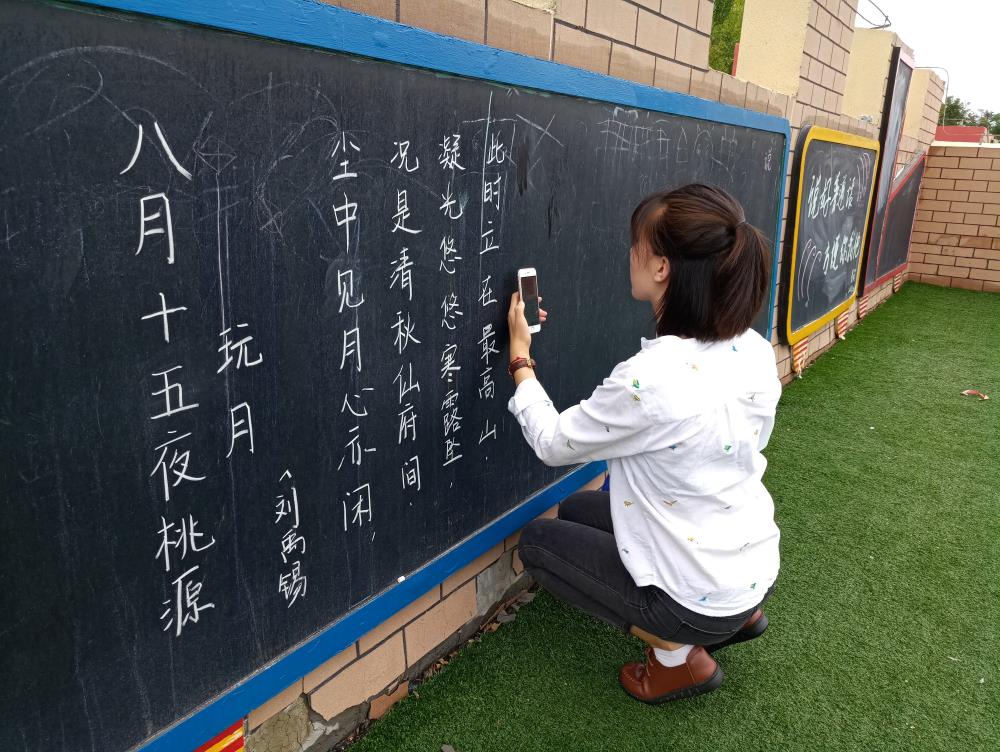 八月十五夜桃源
玩月
刘禹锡
尘中见月心亦闲，
况是清秋仙府间.
凝光悠悠寒露坠，
此时立在最高山.
说好普通话
方便你我他